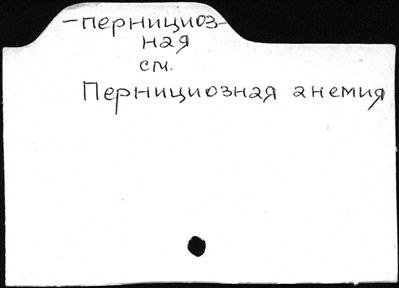 -пернициоз-
ная
см.
Пернициозная анемия